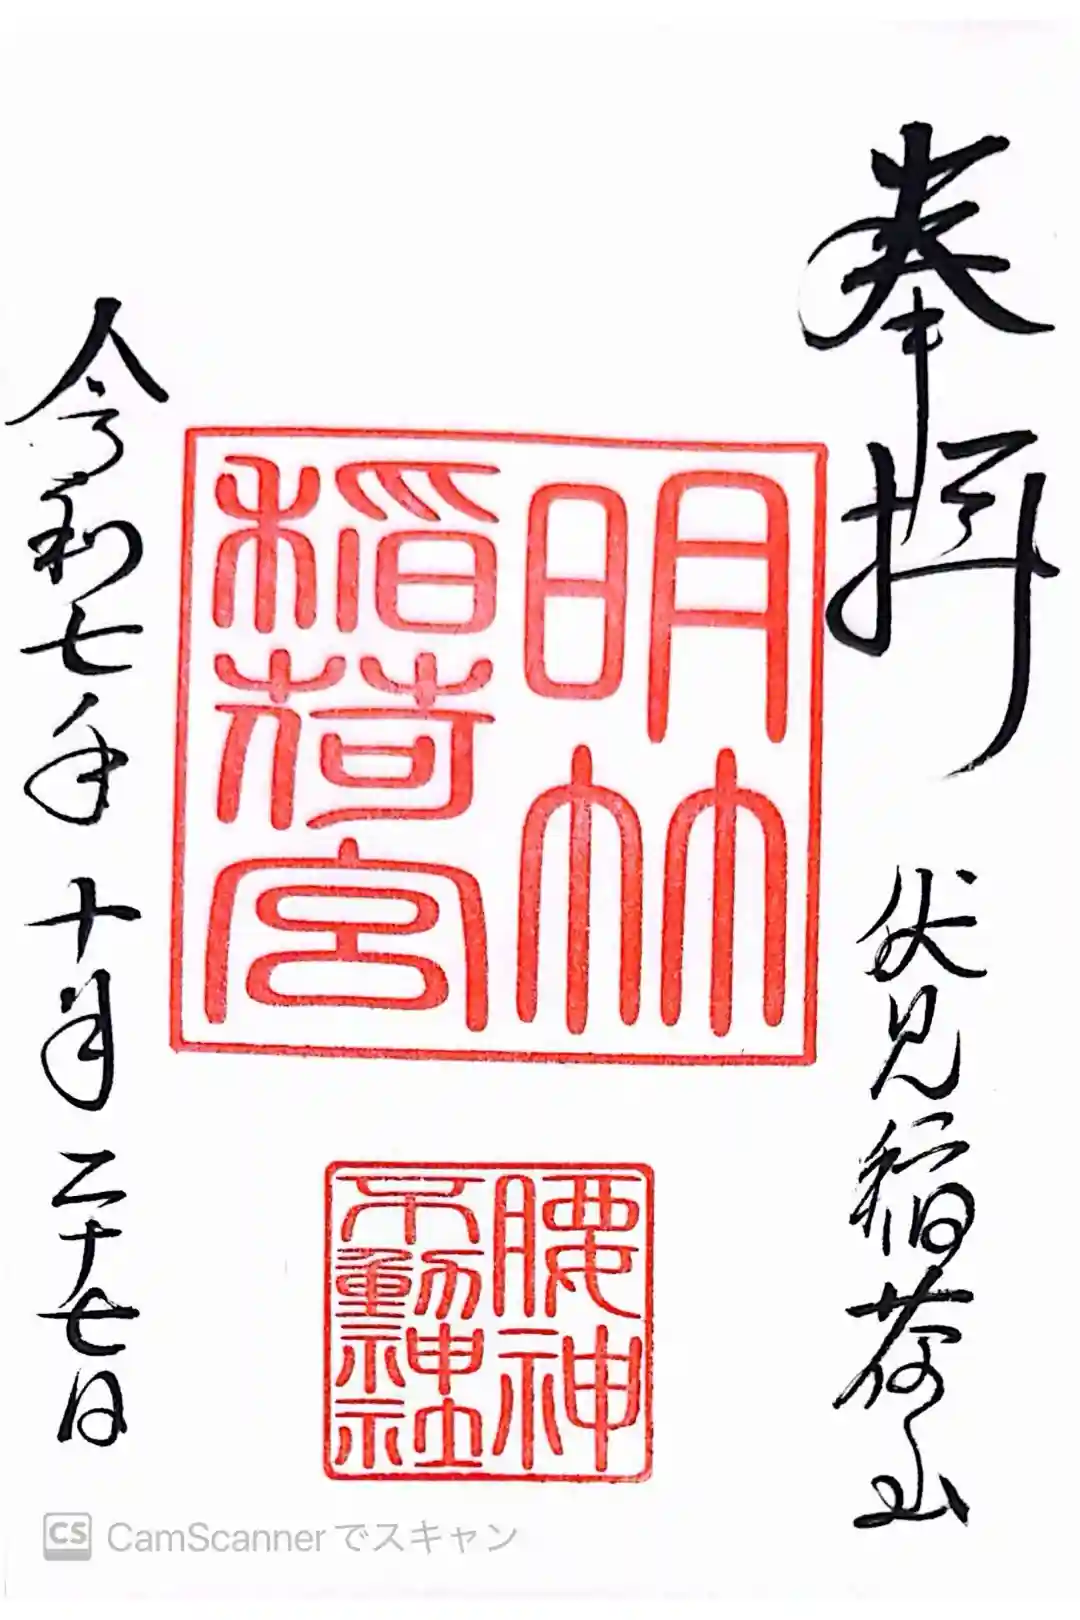 奉拝
伏見稲荷山
明竹
稲荷宮
腰神
不動神社
令和七年十月二十七日
CS CamScannerでスキャン